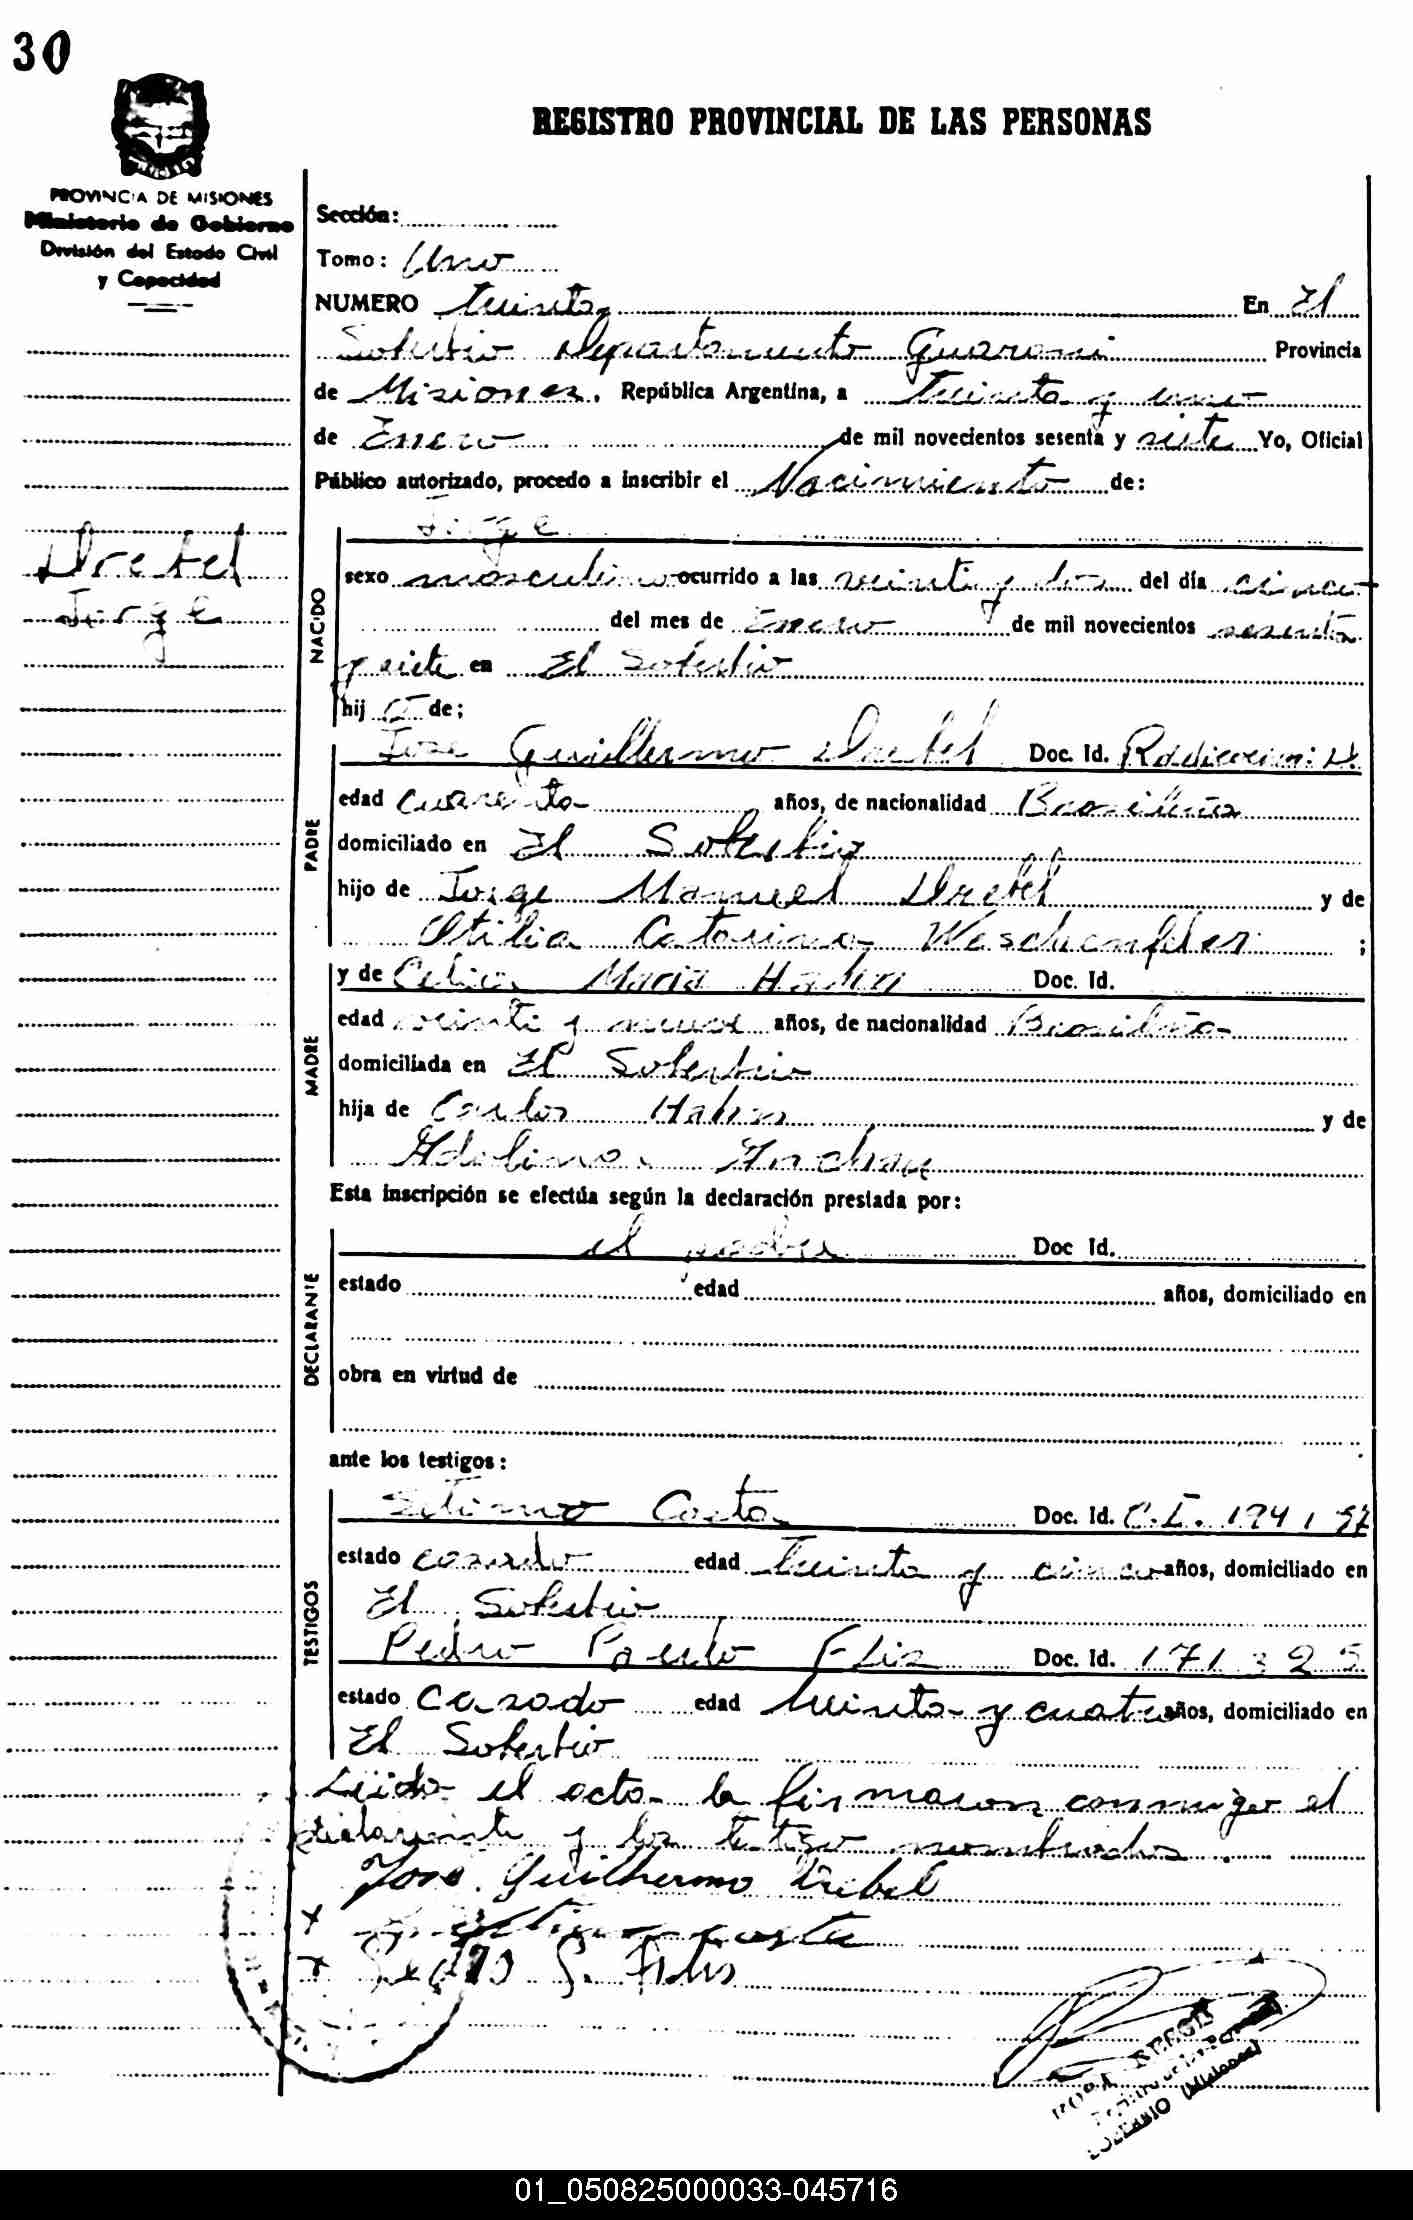 30
REGISTRO PROVINCIAL DE LAS PERSONAS
PROVINCIA DE MISIONES
Ministerio de Gobierno
División del Estado Civil
y Capacidad
Sección:
Tomo: Uno
NUMERO treinta En El
Soberbio Departamento Guarani Provincia
de Misiones, República Argentina, a treinta y uno
de Enero de mil novecientos sesenta y siete Yo, Oficial
Público autorizado, procedo a inscribir el Nacimiento de:
Drebel
Jorge
NACIDO
Jorge
sexo masculino ocurrido a las veinti y dos del día cinco
del mes de Enero de mil novecientos sesenta
y siete en El Soberbio
hij o de;
PADRE
Jose Guillermo Drebel Doc. Id.
edad cuarenta años, de nacionalidad Brasileña
domiciliado en El Soberbio
hijo de Jorge Manuel Drebel y de
Otilia Catarina Weschenfelder ;
MADRE
y de Celia Maria Hahn Doc. Id.
edad veinti y nueve años, de nacionalidad Brasileña
domiciliada en El Soberbio
hija de Carlos Hahn y de
Adelina
Esta inscripción se efectúa según la declaración prestada por:
DECLARANTE
el padre Doc Id.
estado edad años, domiciliado en
obra en virtud de
ante los testigos:
TESTIGOS
Setimo Costa Doc. Id. C.I. 1941
estado casado edad treinta y cinco años, domiciliado en
El Soberbio
Pedro Paulo Doc. Id. 171325
estado Casado edad treinta y cuatro años, domiciliado en
El Soberbio
Leida el acta la firmaron conmigo el
declarante y los testigo nombrados.
José Guilhermo Drebel
x Costa
x Pedro P.
SOBERBIO (Misiones)
01_050825000033-045716